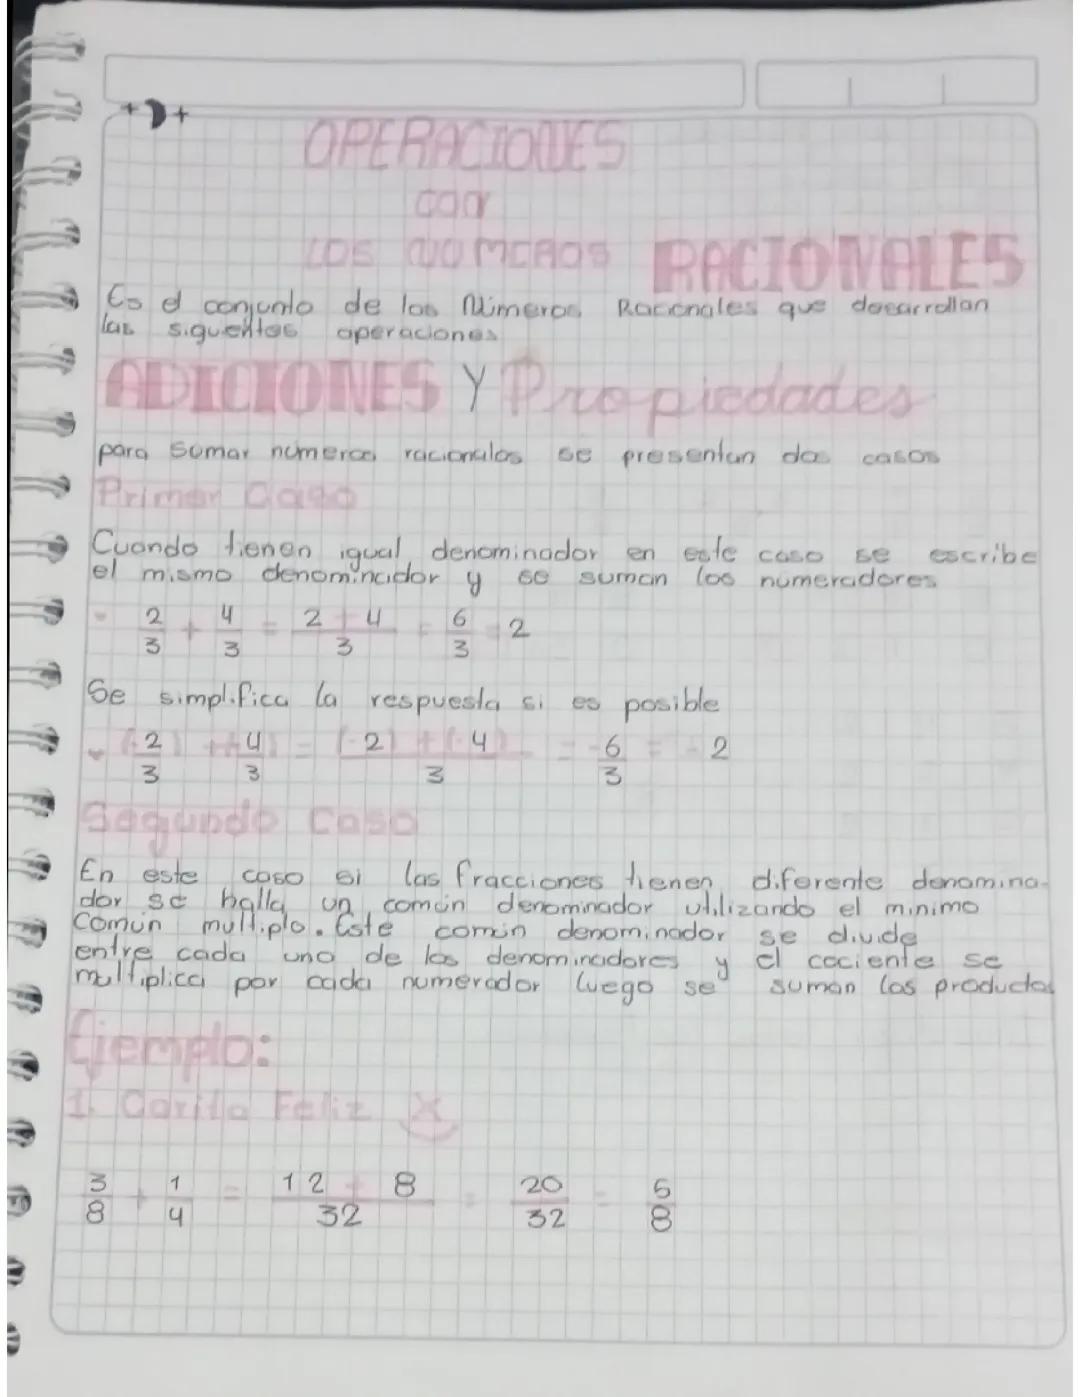 OPERACIONES
con
LOS NUMEROS RACIONALES
Es el conjunto de los Números Racionales que desarrollan
las siguientes operaciones
ADICIONES Y Propiedades
para sumar números racionales se presentan dos casos
Primer Caso
Cuando tienen igual denominador en este caso se escribe
el mismo denominador y se suman los numeradores
- 2/3 + 4/3 = 2 + 4/3 = 6/3 = 2
Se simplifica la respuesta si es posible
- (-2/3) + (-4/3) = (-2) + (-4)/3 = -6/3 = -2
Segundo Caso
En este caso si las fracciones tienen diferente denomina-
dor se halla un común denominador utilizando el minimo
Común multiplo. Este común denominador se divide
entre cada uno de los denominadores y el cociente se
multiplica por cada numerador luego se suman los productos
Ejemplo:
1. Carita Feliz
3/8 + 1/4 = 12 + 8/32 = 20/32 = 5/8